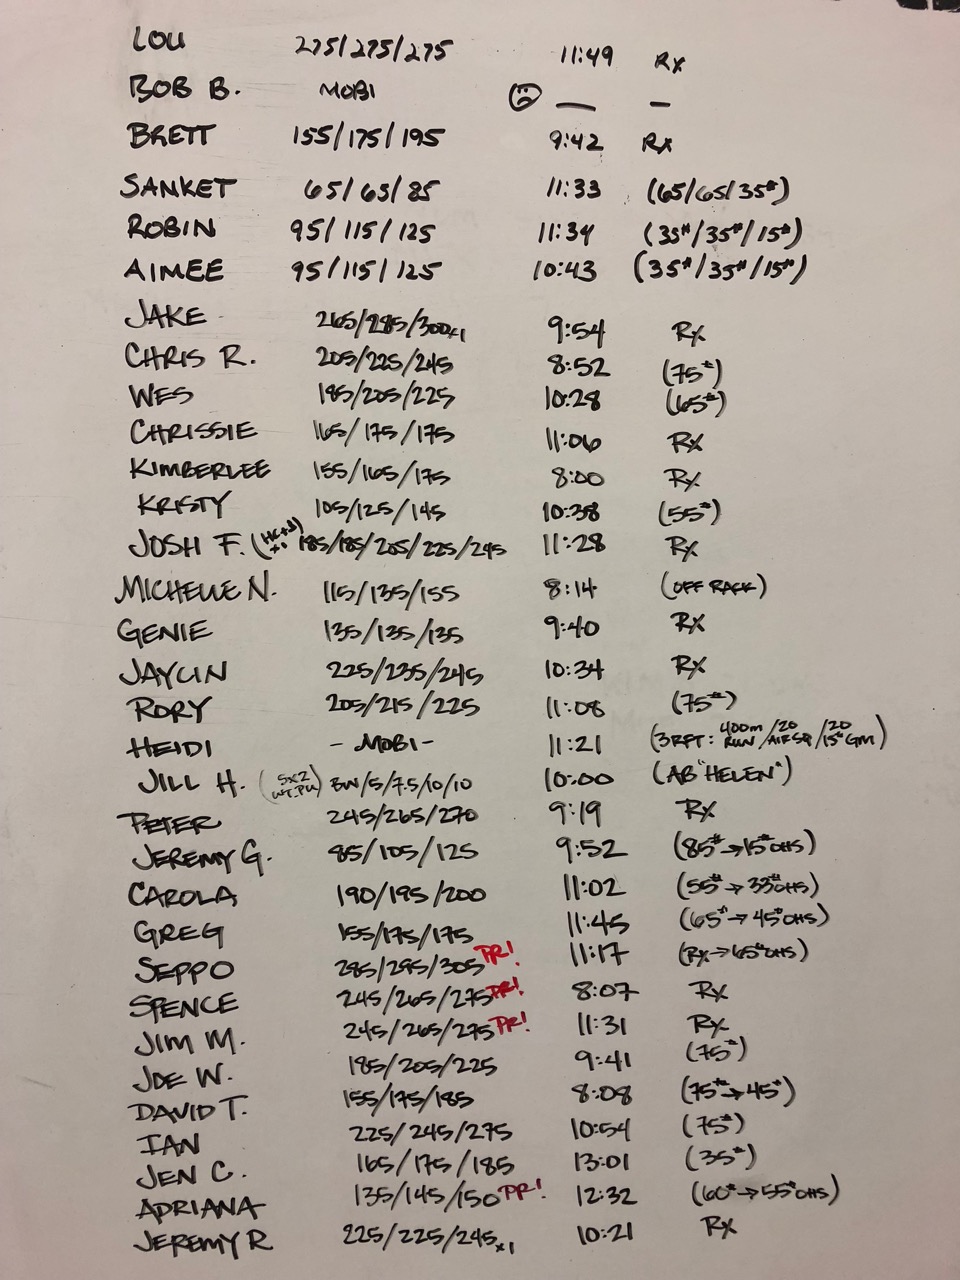 LOU 275/275/275 11:49 Rx
BOB B. MOBI — —
BRETT 155/175/195 9:42 Rx
SANKET 65/65/85 11:33 (65/65/35#)
ROBIN 95/115/125 11:34 (35#/35#/15#)
AIMEE 95/115/125 10:43 (35#/35#/15#)
JAKE 265/285/300x1 9:54 Rx
CHRIS R. 205/225/245 8:52 (75#)
WES 185/205/225 10:28 (65#)
CHRISSIE 165/175/175 11:06 Rx
KIMBERLEE 155/165/175 8:00 Rx
KRISTY 105/125/145 10:38 (55#)
JOSH F. 185/185/205/225/245 11:28 Rx
MICHELLE N. 115/135/155 8:14 (OFF RACK)
GENIE 135/135/135 9:40 Rx
JAYLIN 225/235/245 10:34 Rx
RORY 205/215/225 11:08 (75#)
HEIDI - MOBI - 11:21 (3RFT: 400m RUN/20 AIR SQ/20 15# GM)
JILL H. (5x2 WT. PU) BW/5/7.5/10/10 10:00 (AB "HELEN")
PETER 245/265/270 9:19 Rx
JEREMY G. 85/105/125 9:52 (85#→15# OHS)
CAROLA 190/195/200 11:02 (55#→33# OHS)
GREG 155/175/175 11:45 (65#→45# OHS)
SEPPO 285/295/305 PR! 11:17 (Rx→65# OHS)
SPENCE 245/265/275 PR! 8:07 Rx
JIM M. 245/265/275 PR! 11:31 Rx
JOE W. 185/205/225 9:41 (75#)
DAVID T. 155/175/185 8:08 (75#→45#)
IAN 225/245/275 10:54 (75#)
JEN C. 165/175/185 13:01 (35#)
ADRIANA 135/145/150 PR! 12:32 (60#→55# OHS)
JEREMY R 225/225/245x1 10:21 Rx